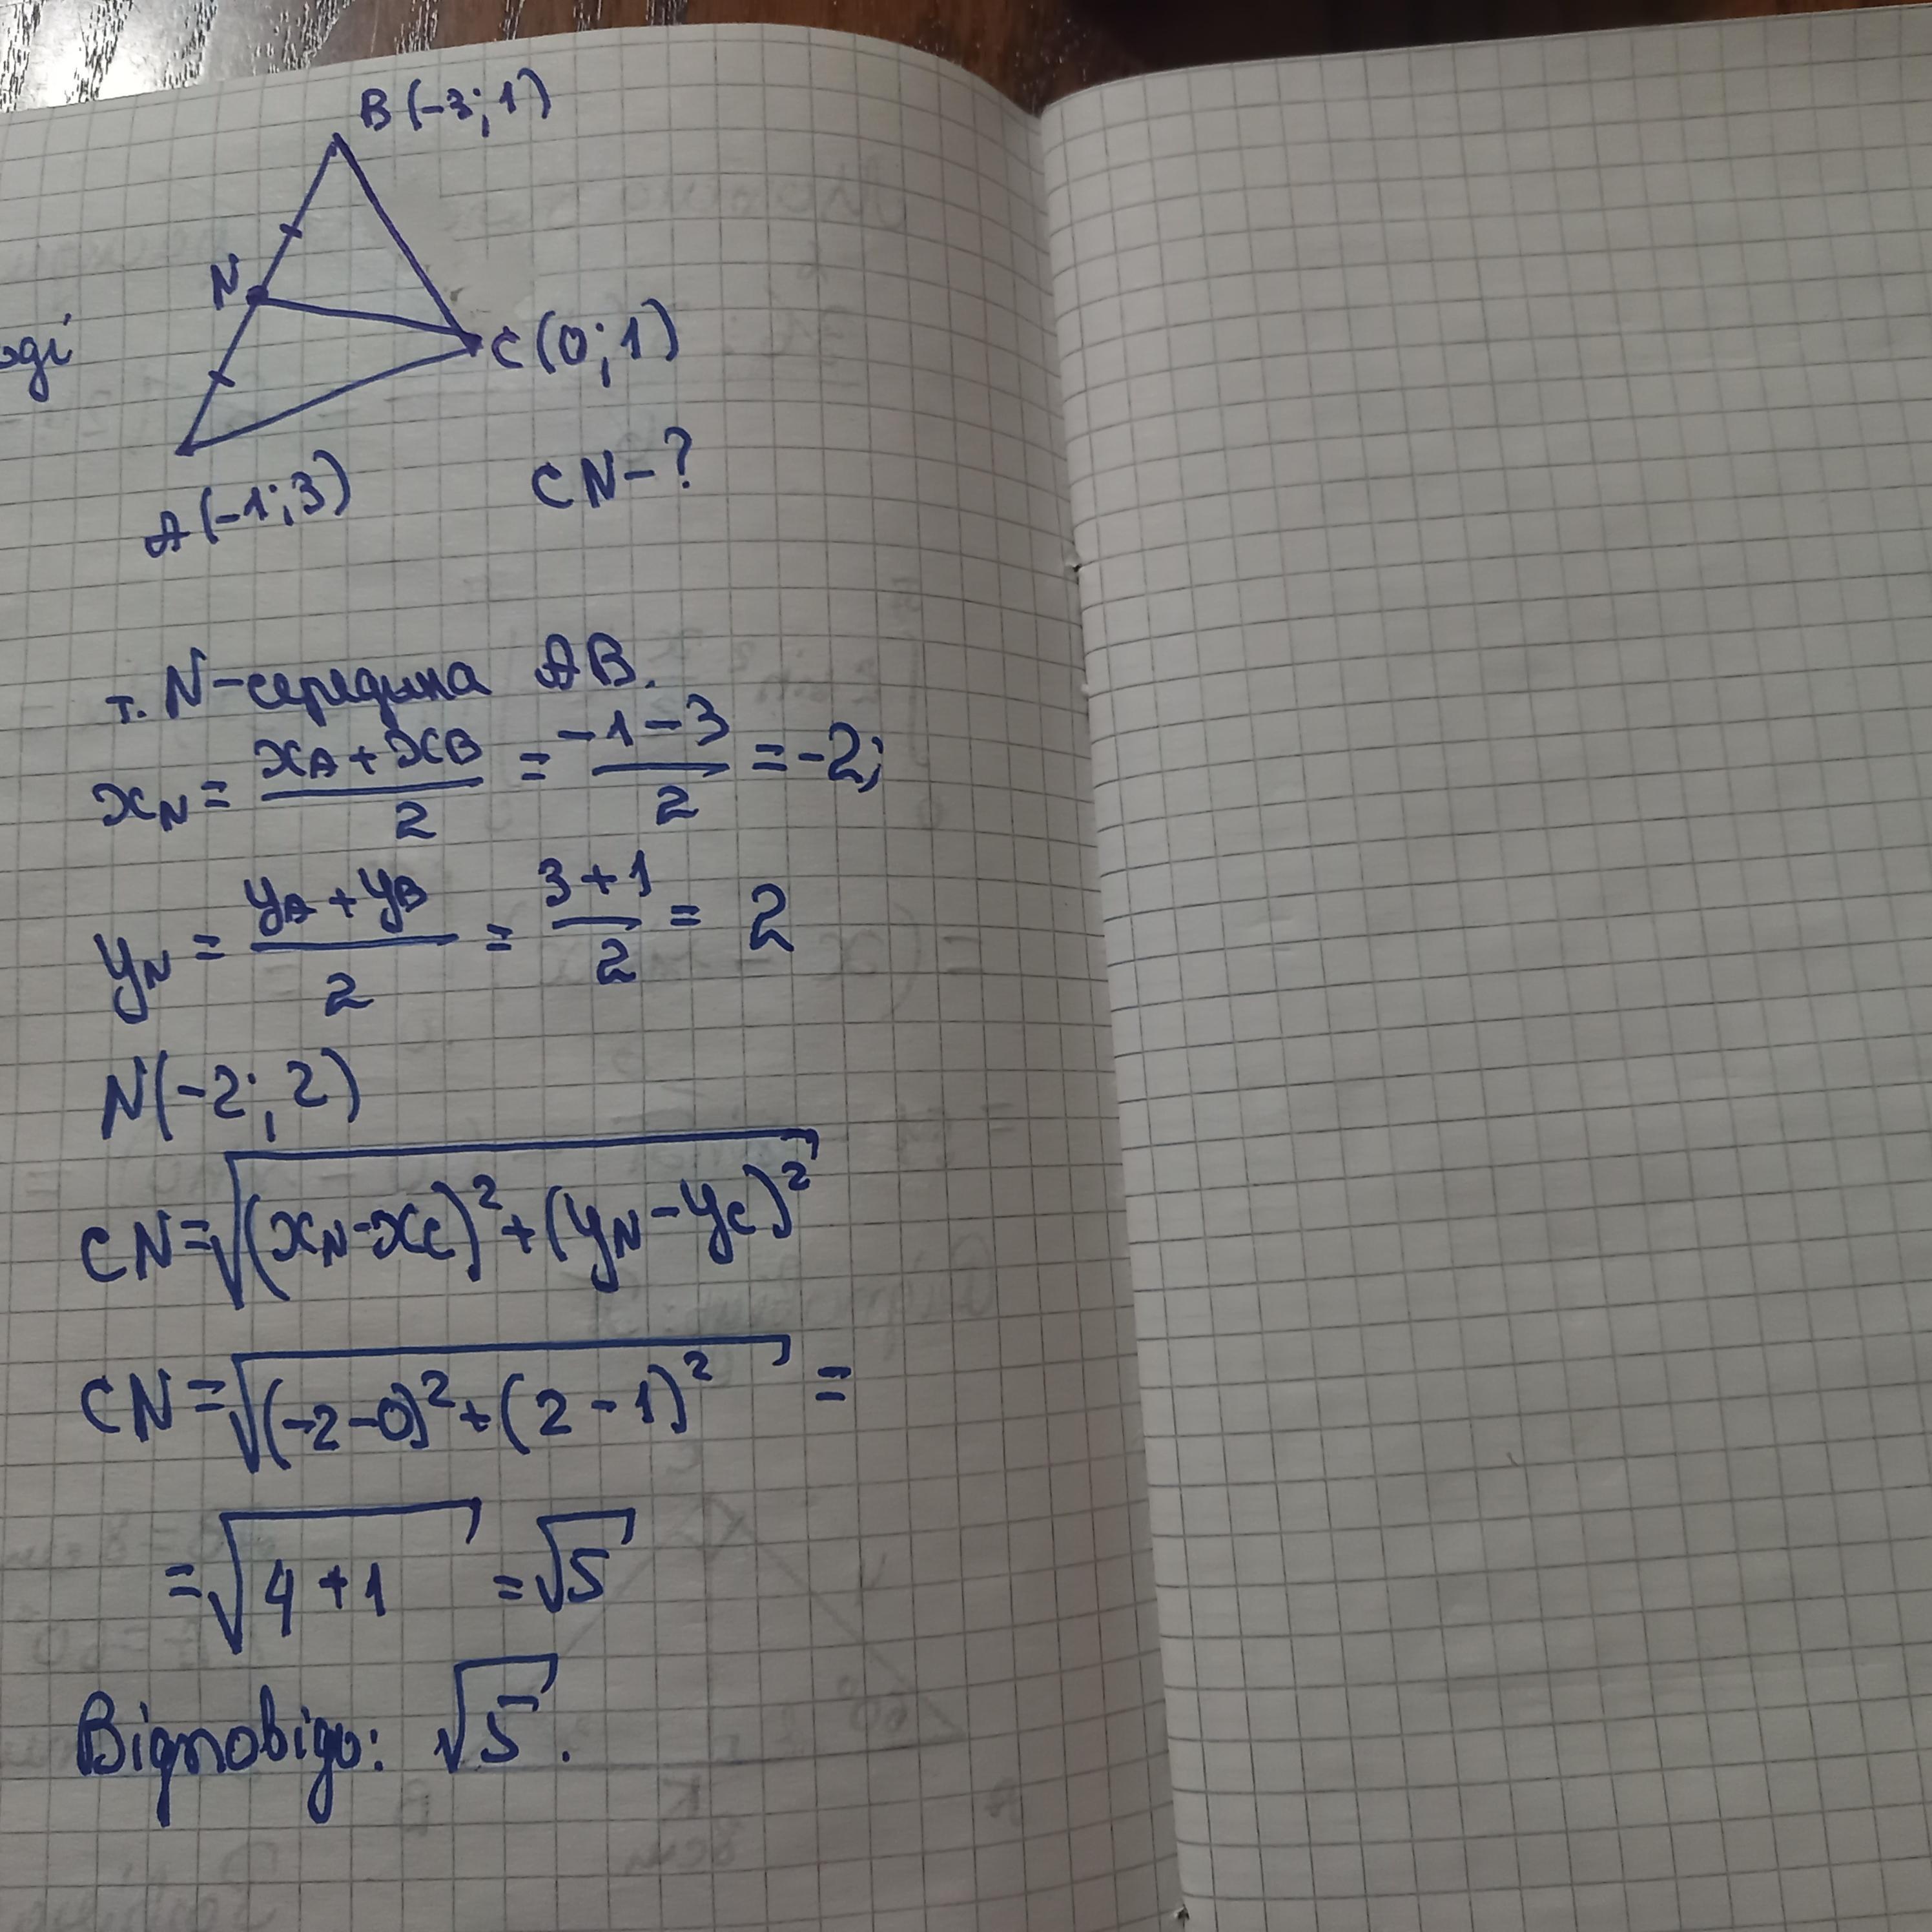 B(-3;1)
N
C(0;1)
A(-1;3)
CN-?
т. N-середина AB.
xN = (xA + xB)/2 = (-1-3)/2 = -2;
yN = (yA + yB)/2 = (3+1)/2 = 2
N(-2;2)
CN=√((xN-xC)²+(yN-yC)²)
CN=√((-2-0)²+(2-1)²) =
=√(4+1) =√5
Відповідь: √5.